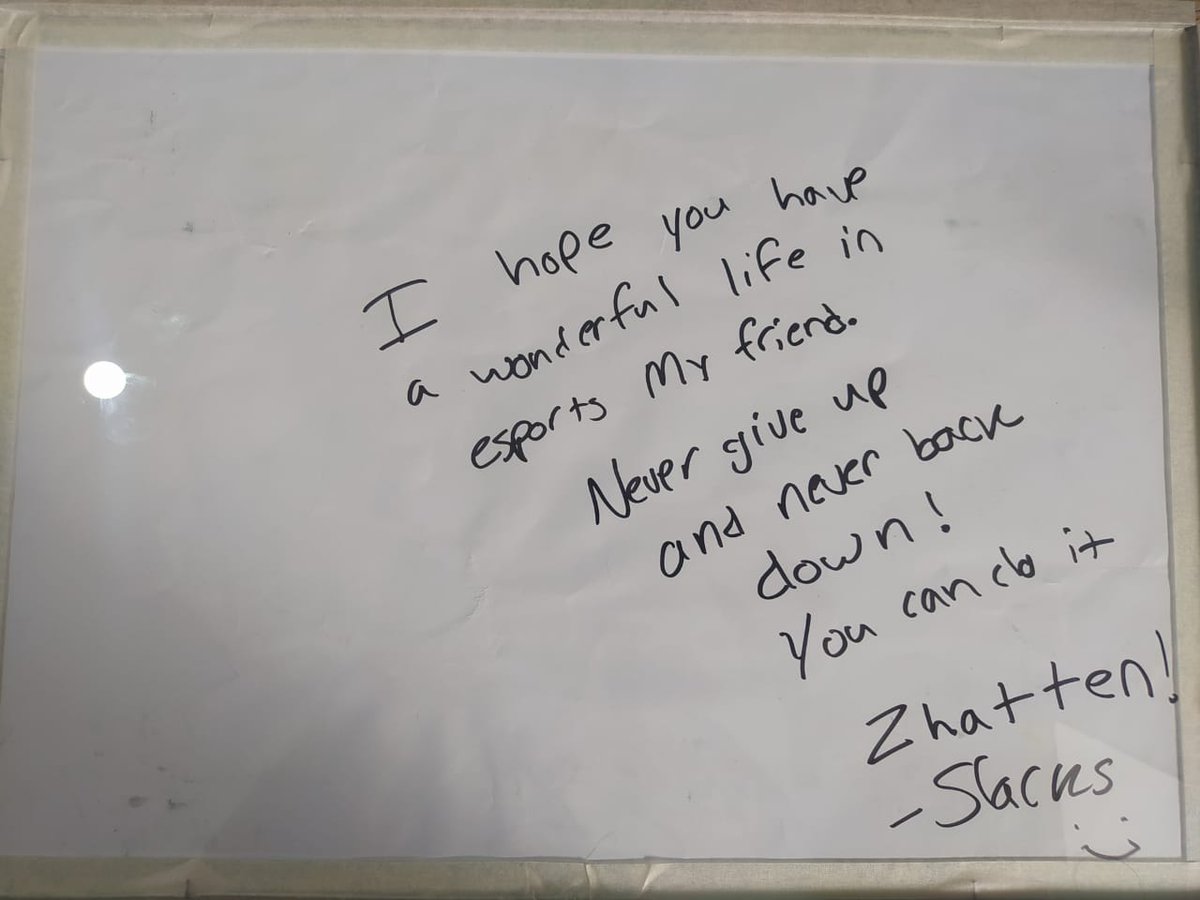 I hope you have
a wonderful life in
esports My friend.
Never give up
and never back
down!
You can do it
Zhatten!
-Slacks
:)